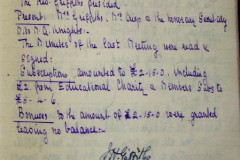 The Rev. Griffiths presided
Present: Mrs Griffiths, Mrs & the Honorary Secretary
The Minutes of the Last Meeting were read &
Signed:-
Subscriptions amounted to £2-15-0, including
£2 from Educational Charity & Members Subs to
Bonuses to the amount of £2-15-0 were granted
leaving no balance:-